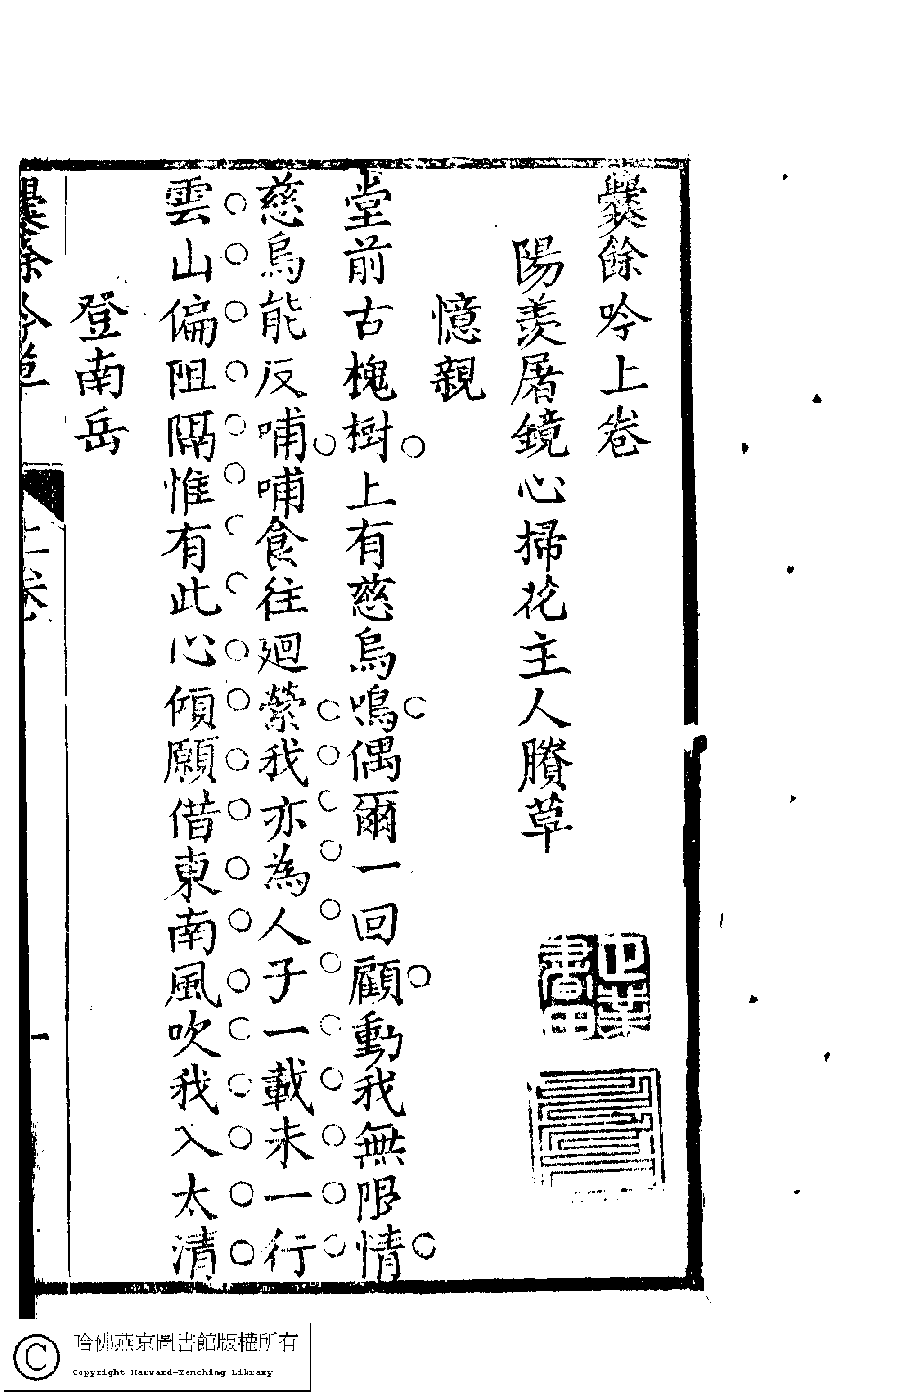 爨餘吟上卷
陽羨屠鏡心掃花主人賸草
憶親
堂前古槐樹上有慈烏鳴偶爾一回顧動我無限情
慈烏能反哺哺食往廻縈我亦為人子一載未一行
雲山偏阻隔惟有此心傾願借東南風吹我入太清
登南岳
爨餘吟
上卷
一
哈佛燕京圖書館版權所有
Copyright Harvard-Yenching Library